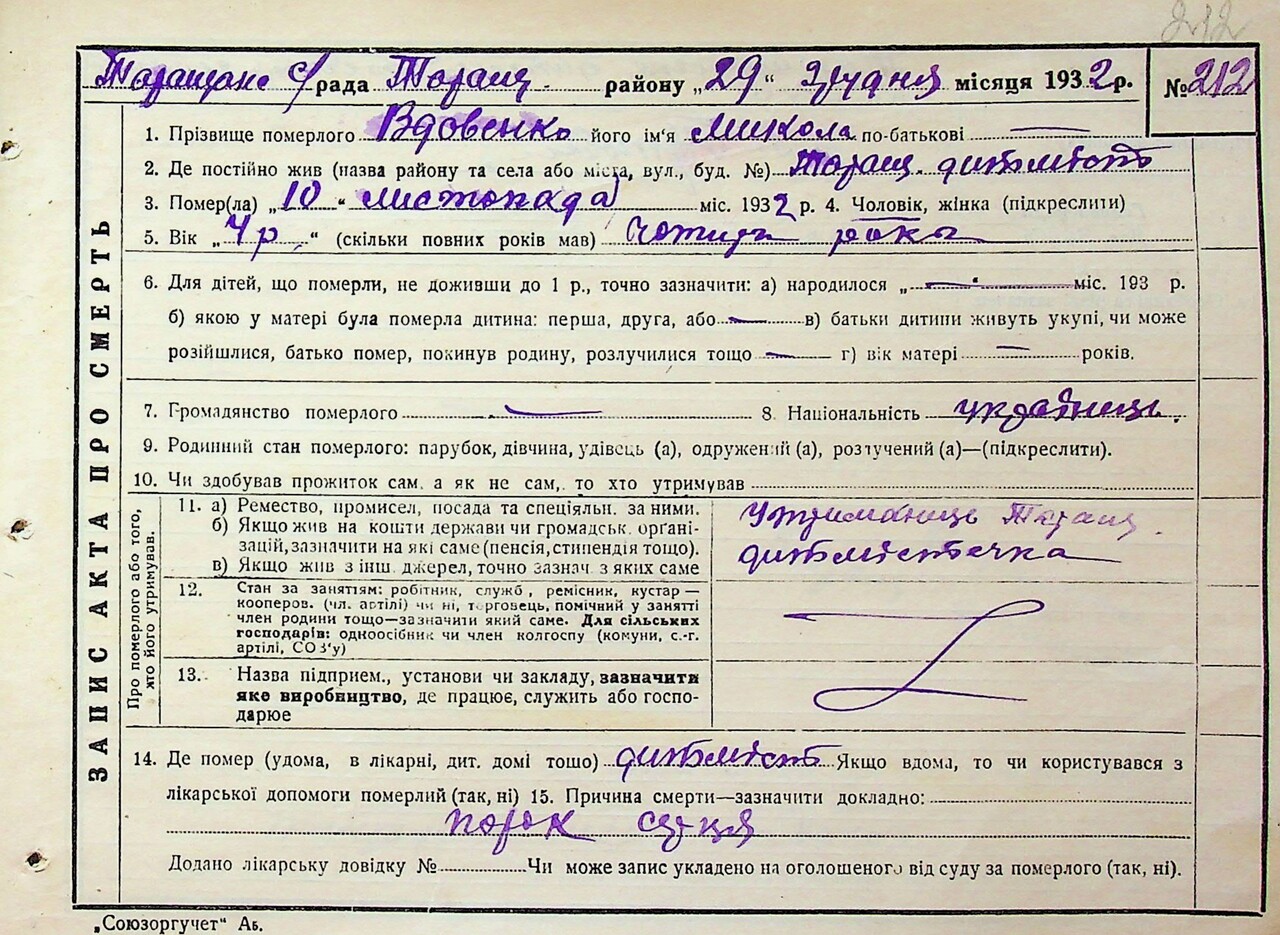 212
Таращанс с/рада Таращ. району „29“ грудня місяця 1932 р. № 212
ЗАПИС АКТА ПРО СМЕРТЬ
1. Прізвище померлого Вдовенко його ім'я Микола по-батькові —
2. Де постійно жив (назва району та села або міста, вул., буд. №) Таращ. дитмість
3. Помер(ла) „10“ листопада міс. 1932 р. 4. Чоловік, жінка (підкреслити)
5. Вік „4 р.“ (скільки повних років мав) Чотири роки
6. Для дітей, що померли, не доживши до 1 р., точно зазначити: а) народилося „—“ — міс. 193 р.
б) якою у матері була померла дитина: перша, друга, або — в) батьки дитини живуть укупі, чи може
розійшлися, батько помер, покинув родину, розлучилися тощо — г) вік матері — років.
7. Громадянство померлого — 8. Національність українець.
9. Родинний стан померлого: парубок, дівчина, удівець (а), одружений (а), розлучений (а)—(підкреслити).
10. Чи здобував прожиток сам, а як не сам, то хто утримував
Про померлого або того, хто його утримував.
11. а) Ремество, промисел, посада та спеціяльн. за ними.
б) Якщо жив на кошти держави чи громадськ. орґані-
зацій, зазначити на які саме (пенсія, стипендія тощо).
в) Якщо жив з інш. джерел, точно зазнач. з яких саме
Утриманець Таращ.
дитмістечка
12. Стан за занятям: робітник, служб, ремісник, кустар—
кооперов. (чл. артілі) чи ні, торговець, помічний у занятті
член родини тощо—зазначити який саме. Для сільських
господарів: одноосібник чи член колгоспу (комуни, с.-г.
артілі, СОЗ'у)
13. Назва підприєм., установи чи закладу, зазначити
яке виробництво, де працює, служить або госпо-
дарює
14. Де помер (удома, в лікарні, дит. домі тощо) дитмість Якщо вдома, то чи користувався з
лікарської допомоги померлий (так, ні) 15. Причина смерти—зазначити докладно:
порок серця
Додано лікарську довідку № Чи може запис укладено на оголошеного від суду за померлого (так, ні).
„Союзоргучет“ Аь.